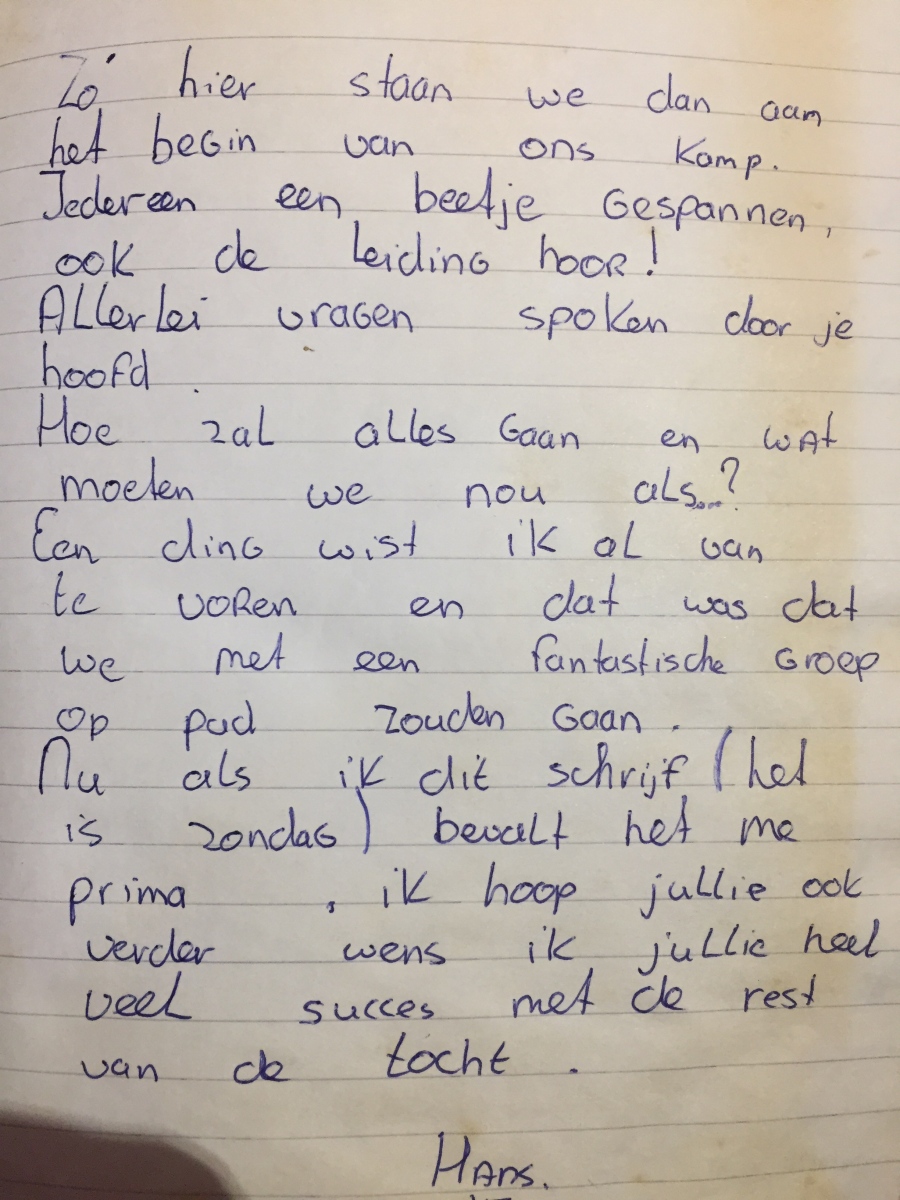 Zó hier staan we dan aan
het begin van ons kamp.
Iedereen een beetje Gespannen,
ook de leiding hoor!
Allerlei vragen spoken door je
hoofd.
Hoe zal alles Gaan en wat
moeten we nou als...?
Een ding wist ik al van
te voren en dat was dat
we met een fantastische Groep
op pad zouden Gaan.
Nu als ik dit schrijf (het
is zondag) bevalt het me
prima, ik hoop jullie ook
verder wens ik jullie heel
veel succes met de rest
van de tocht.
Hans.